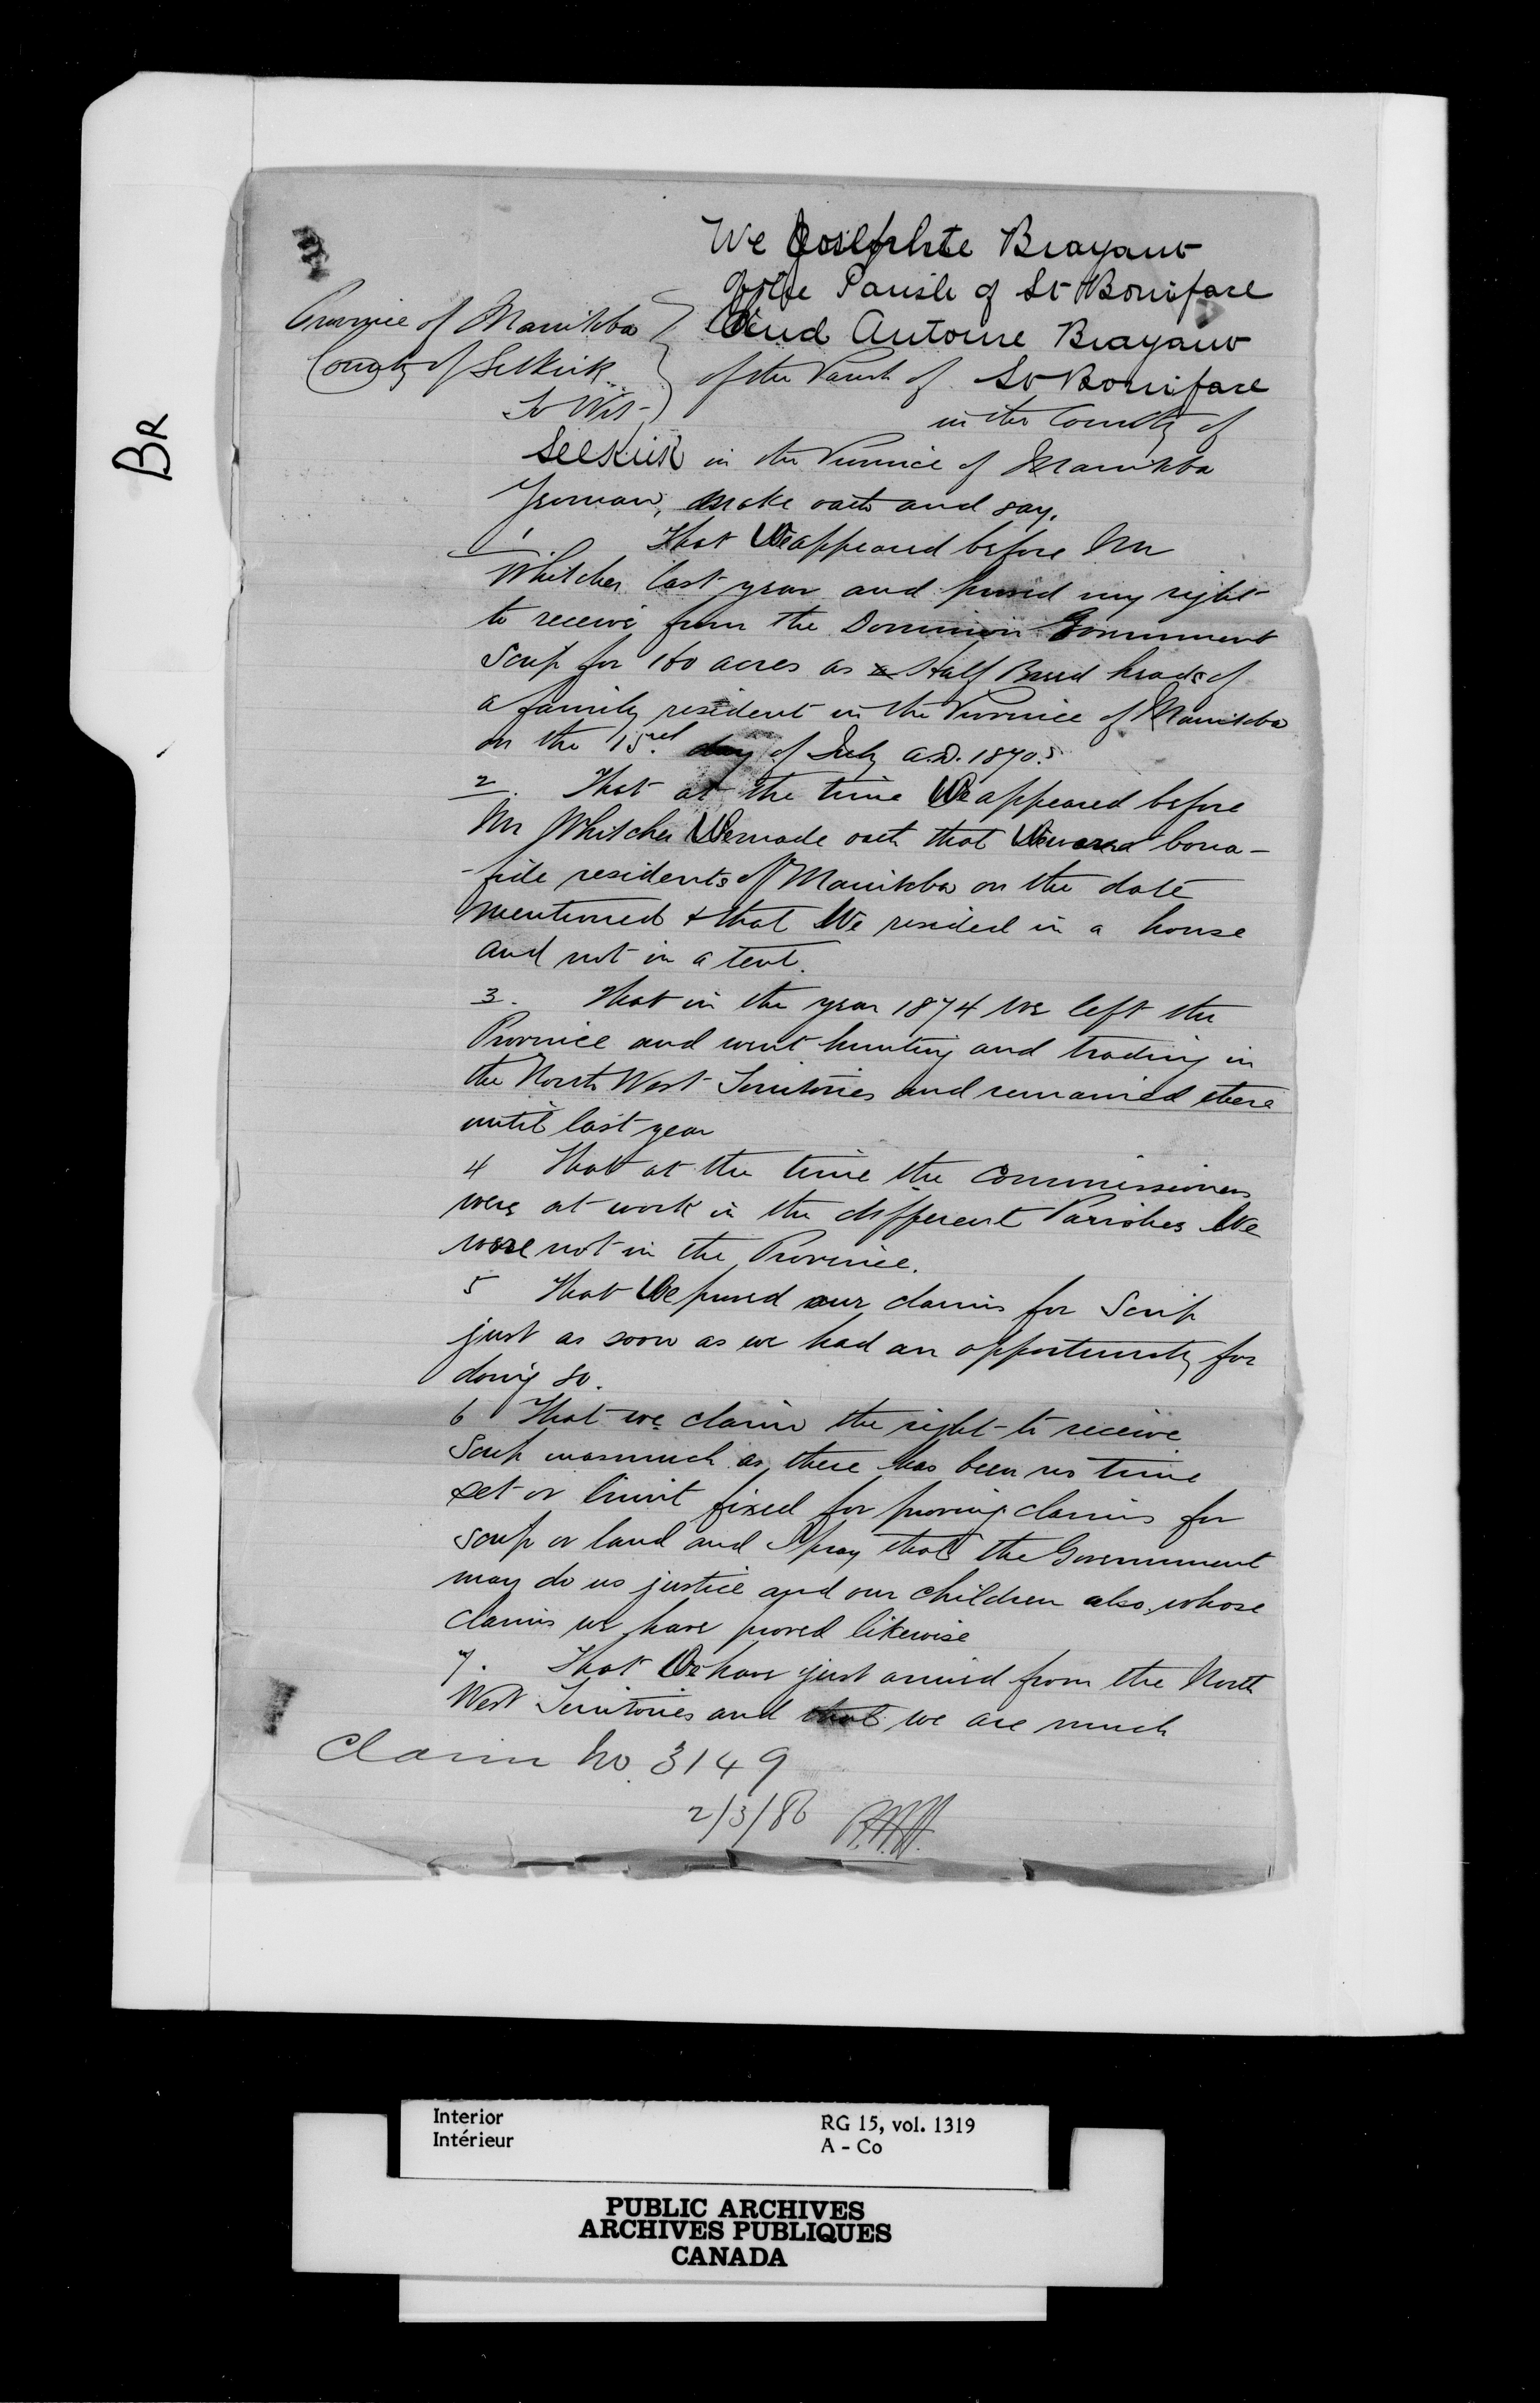 BR
We Josephte Brayant
of the Parish of St Boniface
Province of Manitoba } And Antoine Brayant
County of Selkirk } of the Parish of St Boniface
To Wit } in the County of
Selkirk in the Province of Manitoba
Yeoman, make oath and say.
1 That We appeared before Mr
Whitcher last year and proved my right
to receive from the Dominion Government
Scrip for 160 acres as a Half Breed heads of
a family resident in the Province of Manitoba
on the 15 day of July A.D. 1870.
2. That at the time We appeared before
Mr Whitcher We made oath that We were bona-
-fide residents of Manitoba on the date
mentioned & that We resided in a house
and not in a tent.
3. That in the year 1874 We left the
Province and went hunting and trading in
the North West Territories and remained there
until last year
4 That at the time the Commissioners
were at work in the different Parishes We
were not in the Province.
5 That We proved our claims for Scrip
just as soon as we had an opportunity for
doing so.
6 That we claim the right to receive
Scrip inasmuch as there has been no time
set or limit fixed for proving claims for
scrip or land and I pray that the Government
may do us justice and our children also, whose
claims we have proved likewise
7. That We have just arrived from the North
West Territories and that we are much
Claim No. 3149
2/3/86
Interior
Intérieur
RG 15, vol. 1319
A - Co
PUBLIC ARCHIVES
ARCHIVES PUBLIQUES
CANADA